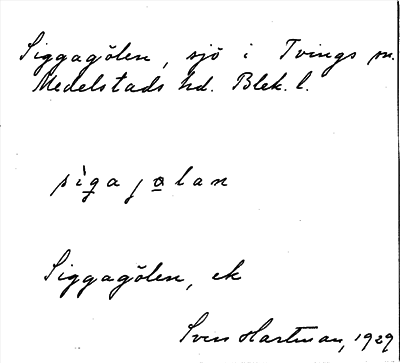 Siggagölen, sjö i Tvings sn.
Medelstads hd. Blek. l.
Siggagölen, ek
Sven Hartman, 1929